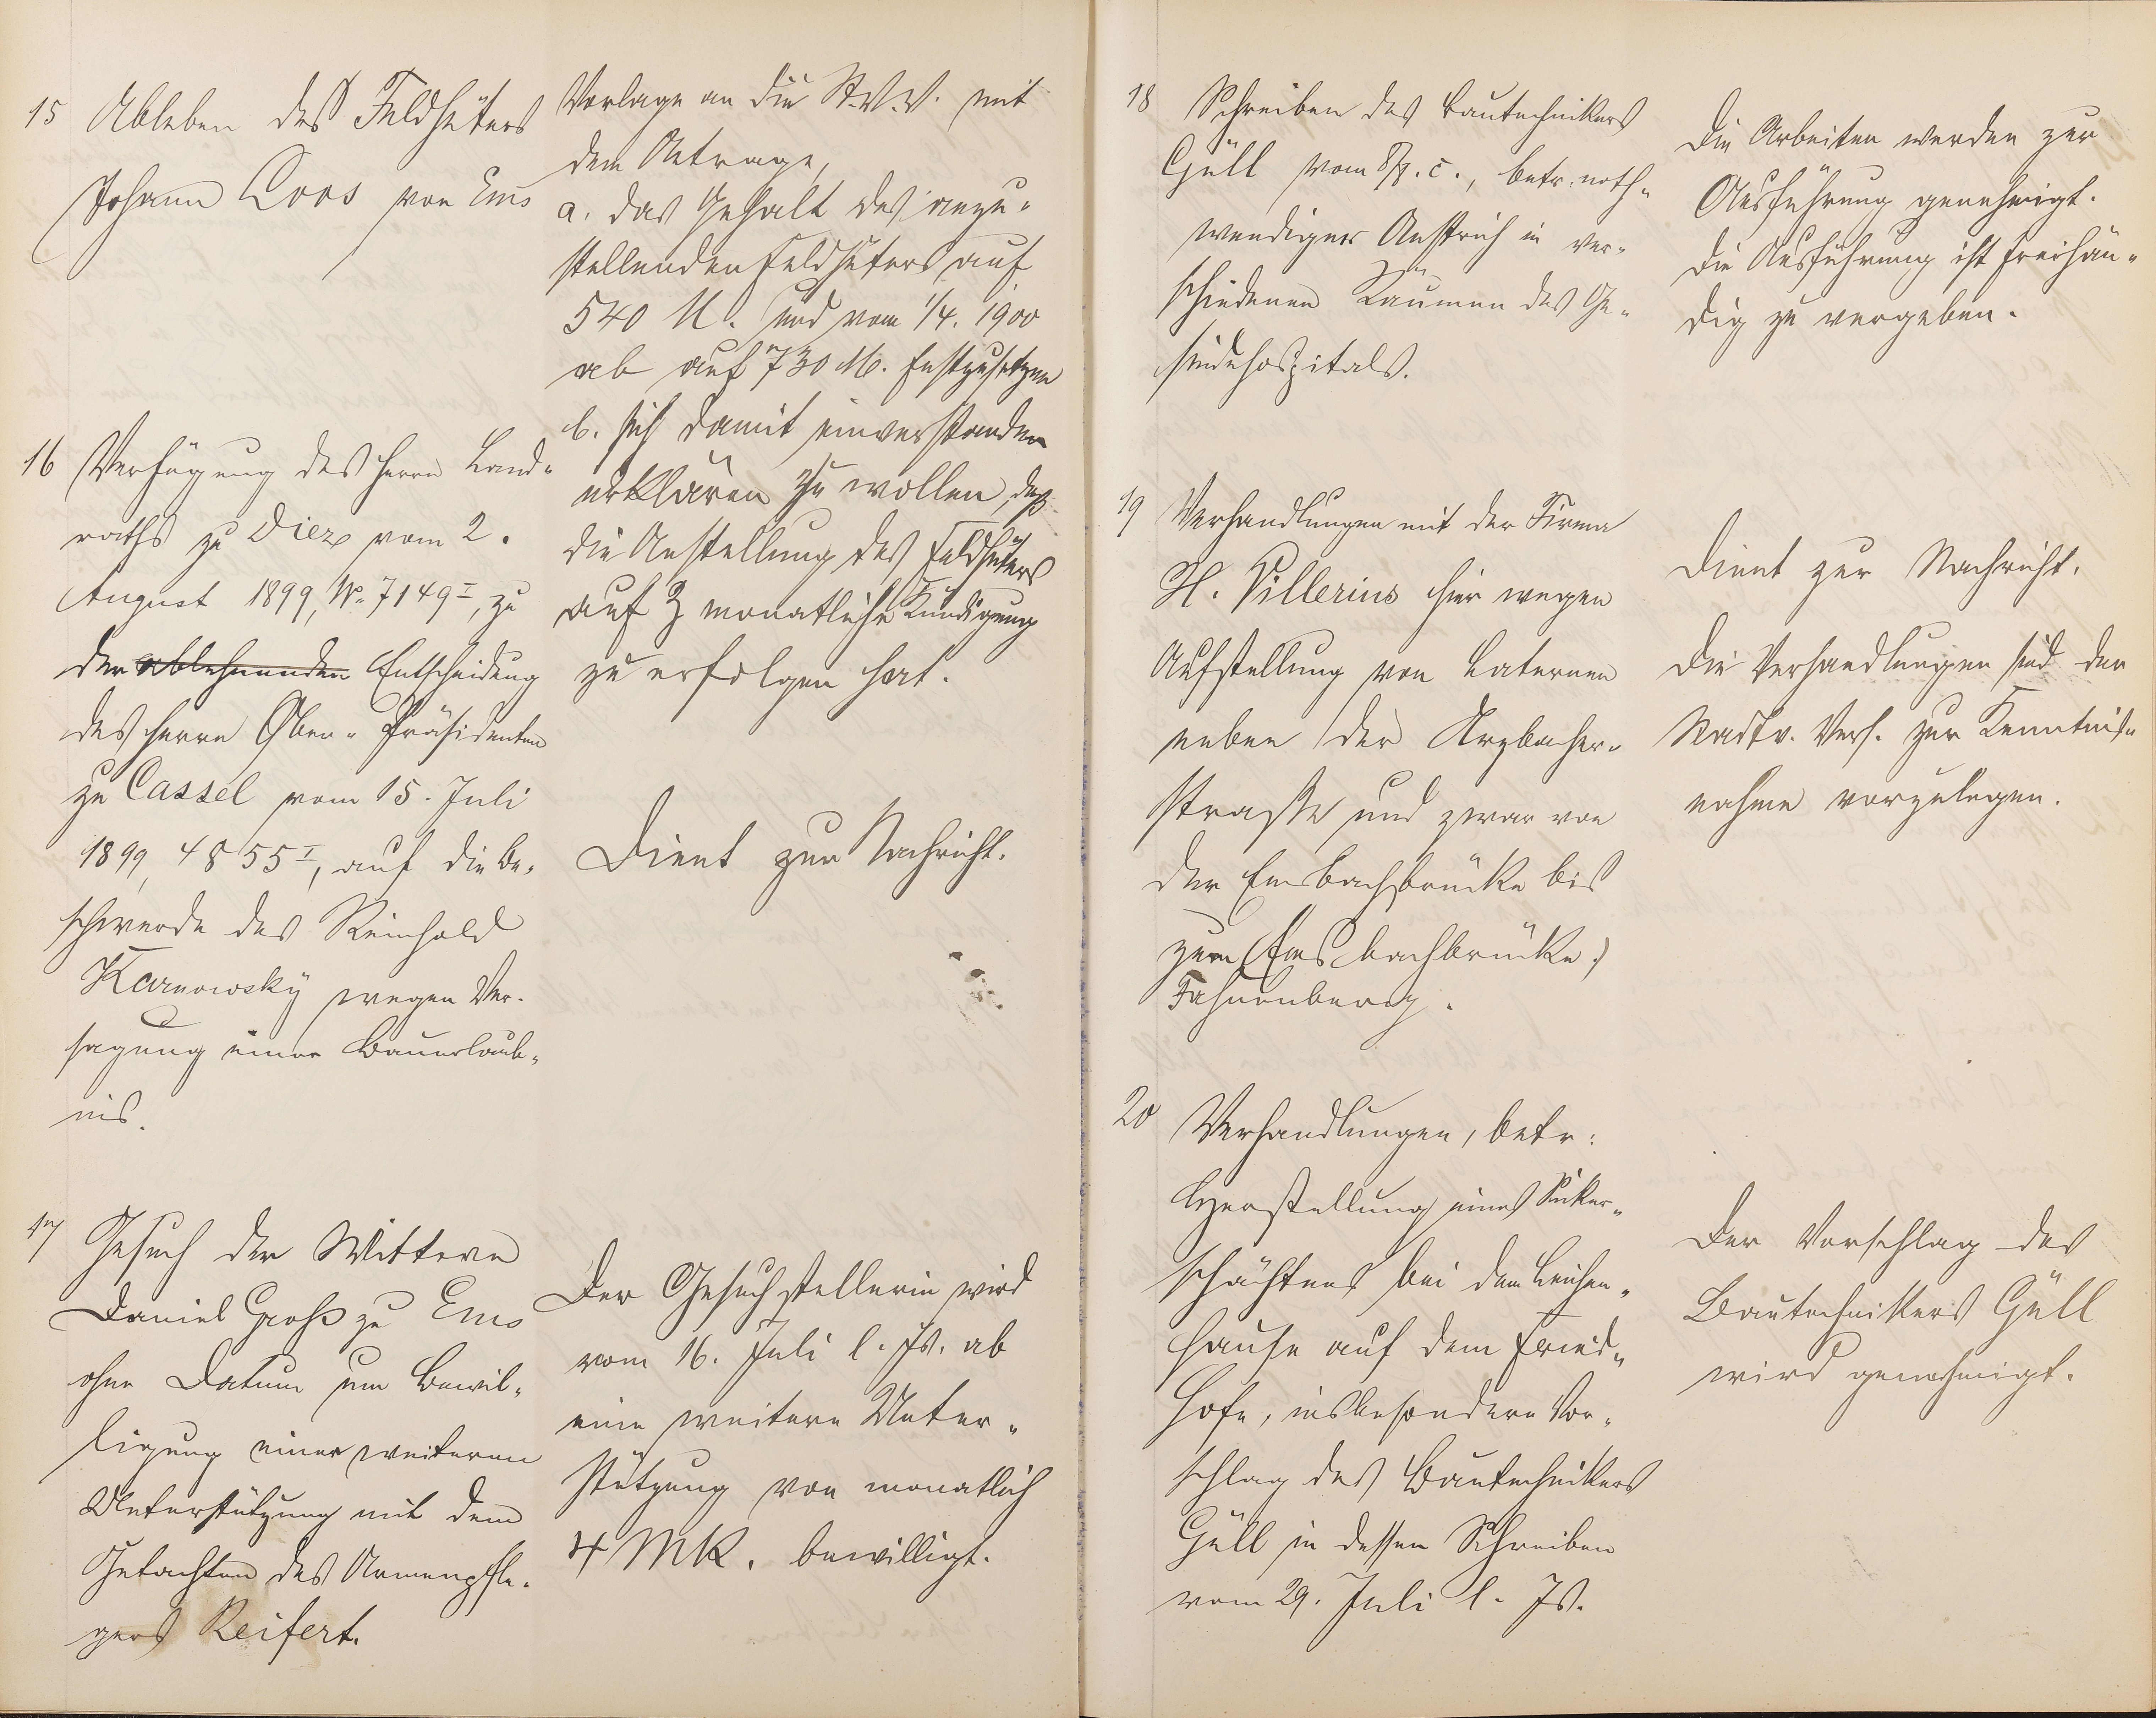 15 Ableben des Feldhüters
Johann Loos von Ems
Vorlage an die St.V.V. mit
dem Antrage,
a. das Gehalt des anzu-
stellenden Feldhüters auf
540 M. und vom 1/4. 1900
ab auf 730 M. festzusetzen
b. sich damit einverstanden
erklären zu wollen, daß
die Anstellung des Feldhüters
auf 3 monatliche Kündigung
zu erfolgen hat.
16 Verfügung des Herrn Land-
raths zu Diez vom 2.
August 1899, No 7149 I, zu
der ablehnenden Entscheidung
des Herrn Ober-Präsidenten
zu Cassel vom 15. Juli
1899, 4855 I, auf die Be-
schwerde des Reinhold
Karnowsky wegen Ver-
sagung einer Bauerlaub-
nis.
Dient zur Nachricht.
17 Gesuch der Wittwe
Daniel Groß zu Ems
ohne Datum um Bewil-
ligung einer weiteren
Unterstützung mit dem
Gutachten des Armenpfle-
gers Reifert.
Der Gesuchstellerin wird
vom 16. Juli l. Js. ab
eine weitere Unter-
stützung von monatlich
4 MK. bewilligt.
18 Schreiben des Bautechnikers
Güll vom 8/8. c., betr. noth-
wendiger Anstrich in ver-
schiedenen Räumen des Ge-
sindehospitals.
Die Arbeiten werden zur
Ausführung genehmigt.
Die Ausführung ist freihän-
dig zu vergeben.
19 Verhandlungen mit der Firma
H. Villerius hier wegen
Aufstellung von Laternen
neben der Arzbacher-
straße und zwar von
der Emsbachbrücke bis
zum (Emsbachbrücke)
Fahnenberg.
Dient zur Nachricht.
Die Verhandlungen sind der
Stadtv. Vers. zur Kenntnis-
nahme vorzulegen.
20 Verhandlungen, betr.
Herstellung eines Sicker-
schächtens bei dem Leichen-
hause auf dem Fried-
hofe, insbesondere Vor-
schlag des Bautechnikers
Güll in dessen Schreiben
vom 29. Juli l. Js.
Der Vorschlag des
Bautechnikers Güll
wird genehmigt.